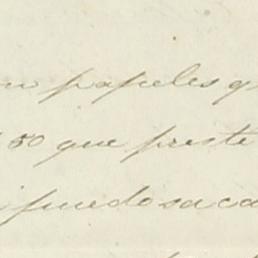 papeles q
50 que preste
puedo saca